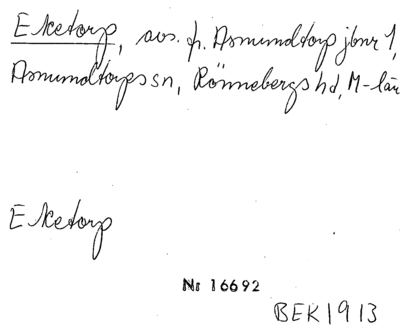 Eketorp, avs. fr. Asmundtorp jbnr 1,
Asmundtorps sn, Rönnebergs hd, M-län
Eketorp
Nr 16692
BEK 1913